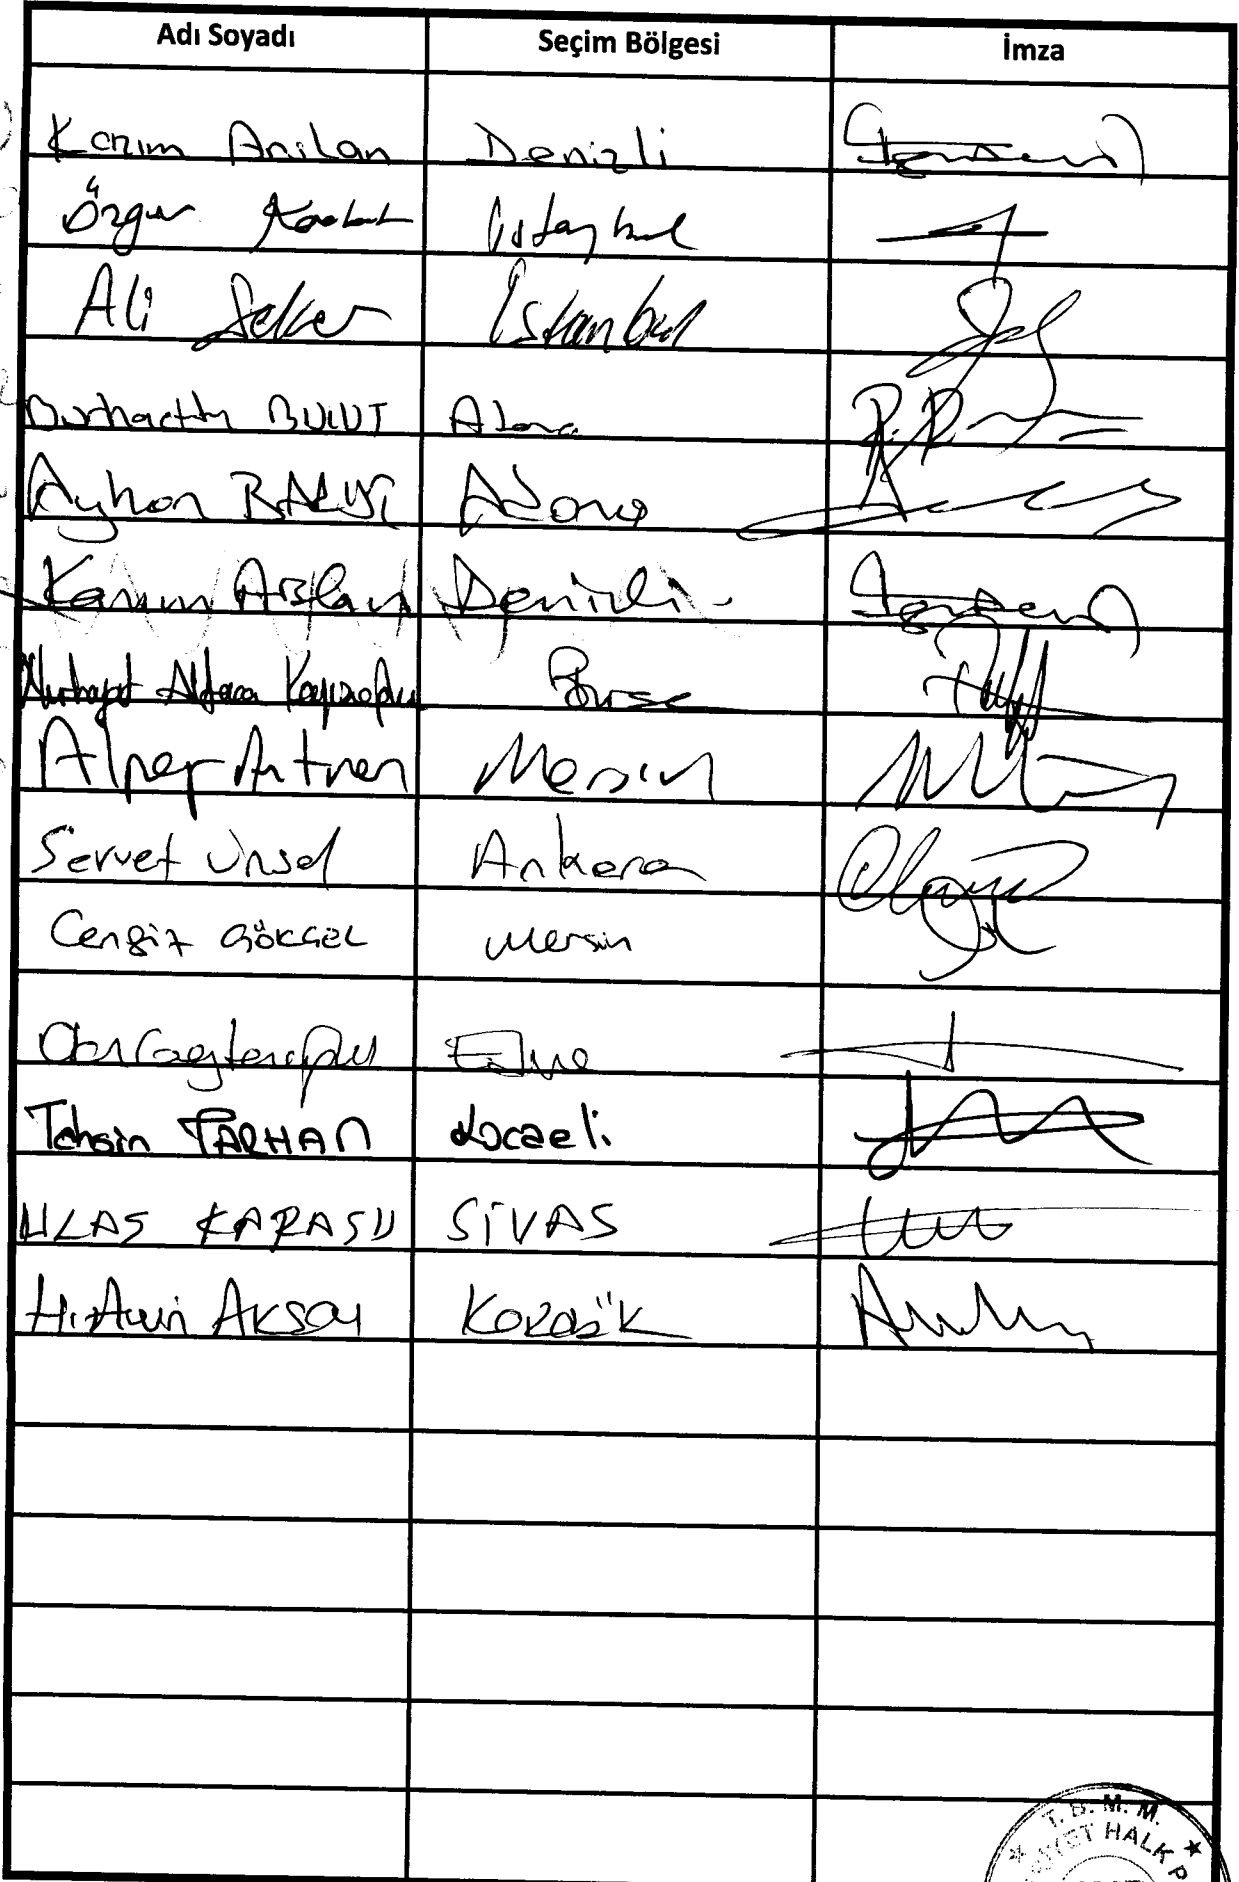 Adı Soyadı Seçim Bölgesi İmza
Kazım Arslan Denizli
Özgür İstanbul
Ali Şeker İstanbul
Burhanettin BULUT Adana
Ayhan BARUT Adana
Kazım Arslan Denizli
Nurhayat Altaca Kayışoğlu Bursa
Alper Antmen Mersin
Servet Ünsal Ankara
Cengiz GÖKÇEL Mersin
Edirne
Tahsin TARHAN Kocaeli
ULAŞ KARASU SİVAS
H. Avni AKSOY Karabük
T.B.M.M.
HALK P